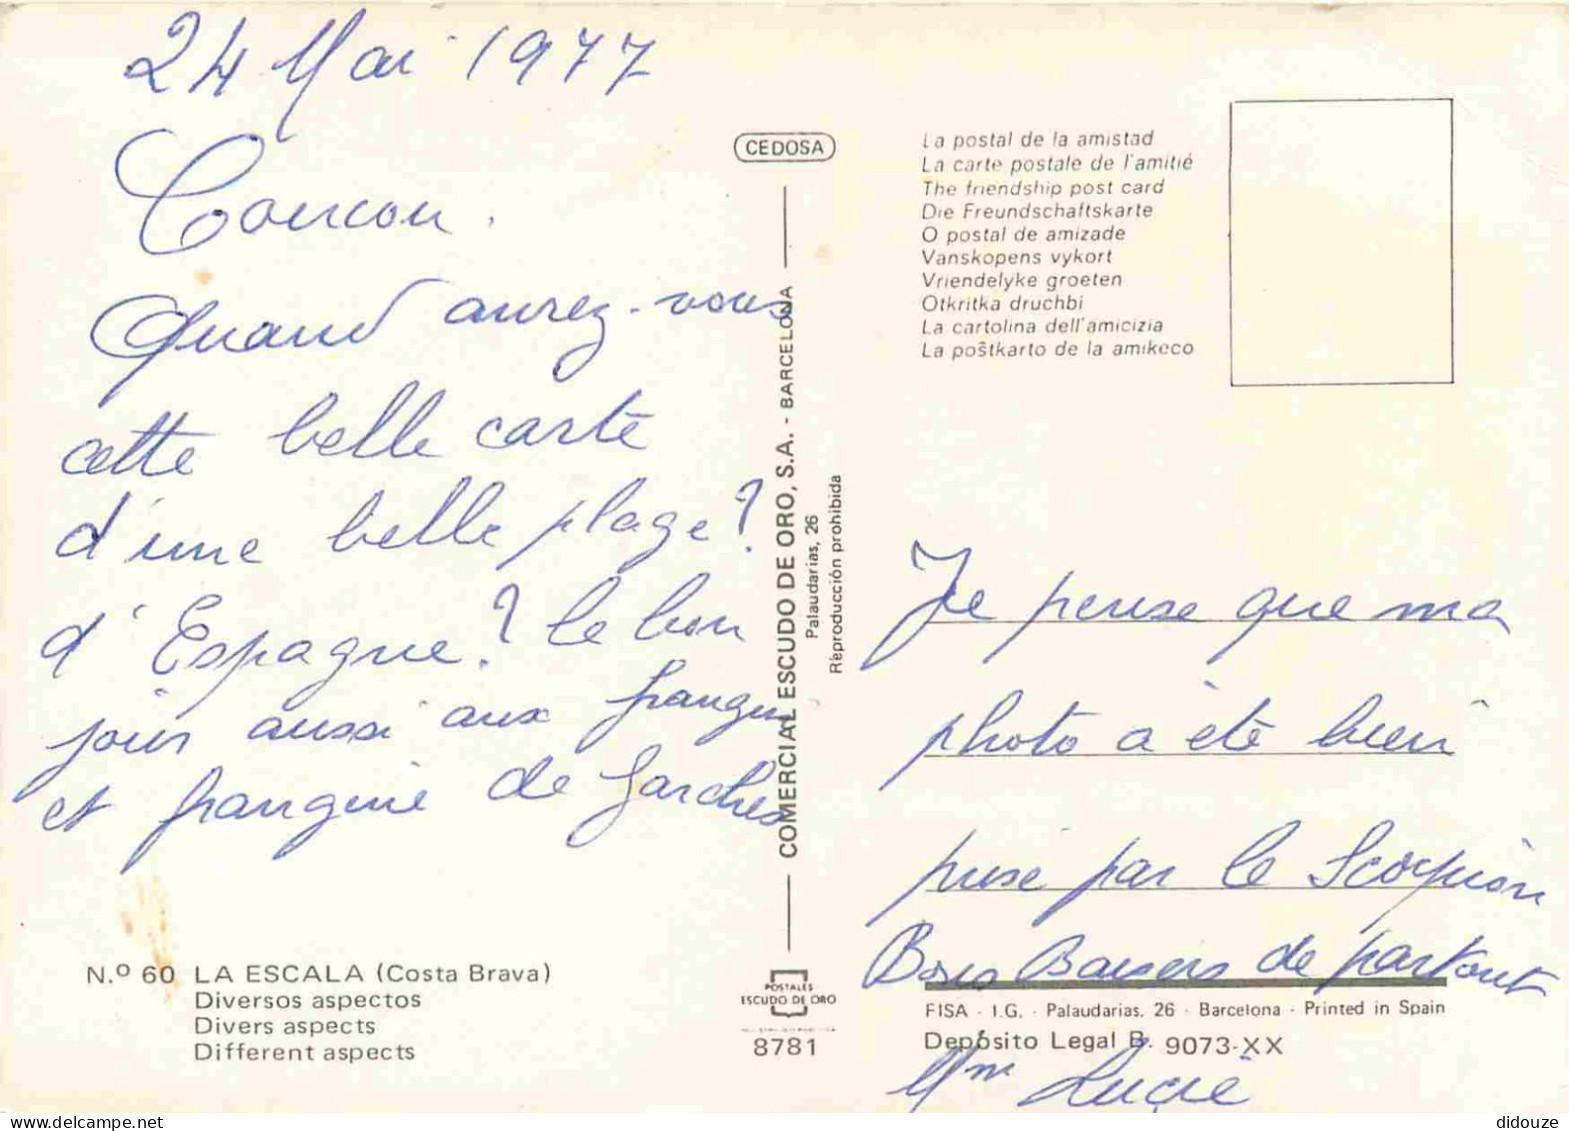 24 Mai 1977
Coucou.
Quand aurez-vous
cette belle carte
d'une belle plage?
d'Espagne? le bon
jour aussi aux frangin
et frangine de Garches
N.º 60 LA ESCALA (Costa Brava)
Diversos aspectos
Divers aspects
Different aspects
CEDOSA
COMERCIAL ESCUDO DE ORO, S.A. - BARCELONA
Palaudarias, 26
Reproducción prohibida
POSTALES
ESCUDO DE ORO
8781
La postal de la amistad
La carte postale de l'amitié
The friendship post card
Die Freundschaftskarte
O postal de amizade
Vanskopens vykort
Vriendelyke groeten
Otkritka druchbi
La cartolina dell'amicizia
La poŝtkarto de la amikeco
Je pense que ma
photo a été bien
prise par le Scorpion
Bons Baisers de partout
FISA - I.G. - Palaudarias, 26 - Barcelona - Printed in Spain
Depósito Legal B. 9073-XX
Mm Lucie
delcampe.net
didouze